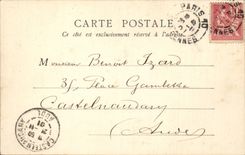 CARTE POSTALE
Ce côté est exclusivement réservé à l'adresse
PARIS
Monsieur Benoit Izard
35, Place Gambetta
Castelnaudary
(Aude)
CASTELNAUDARY